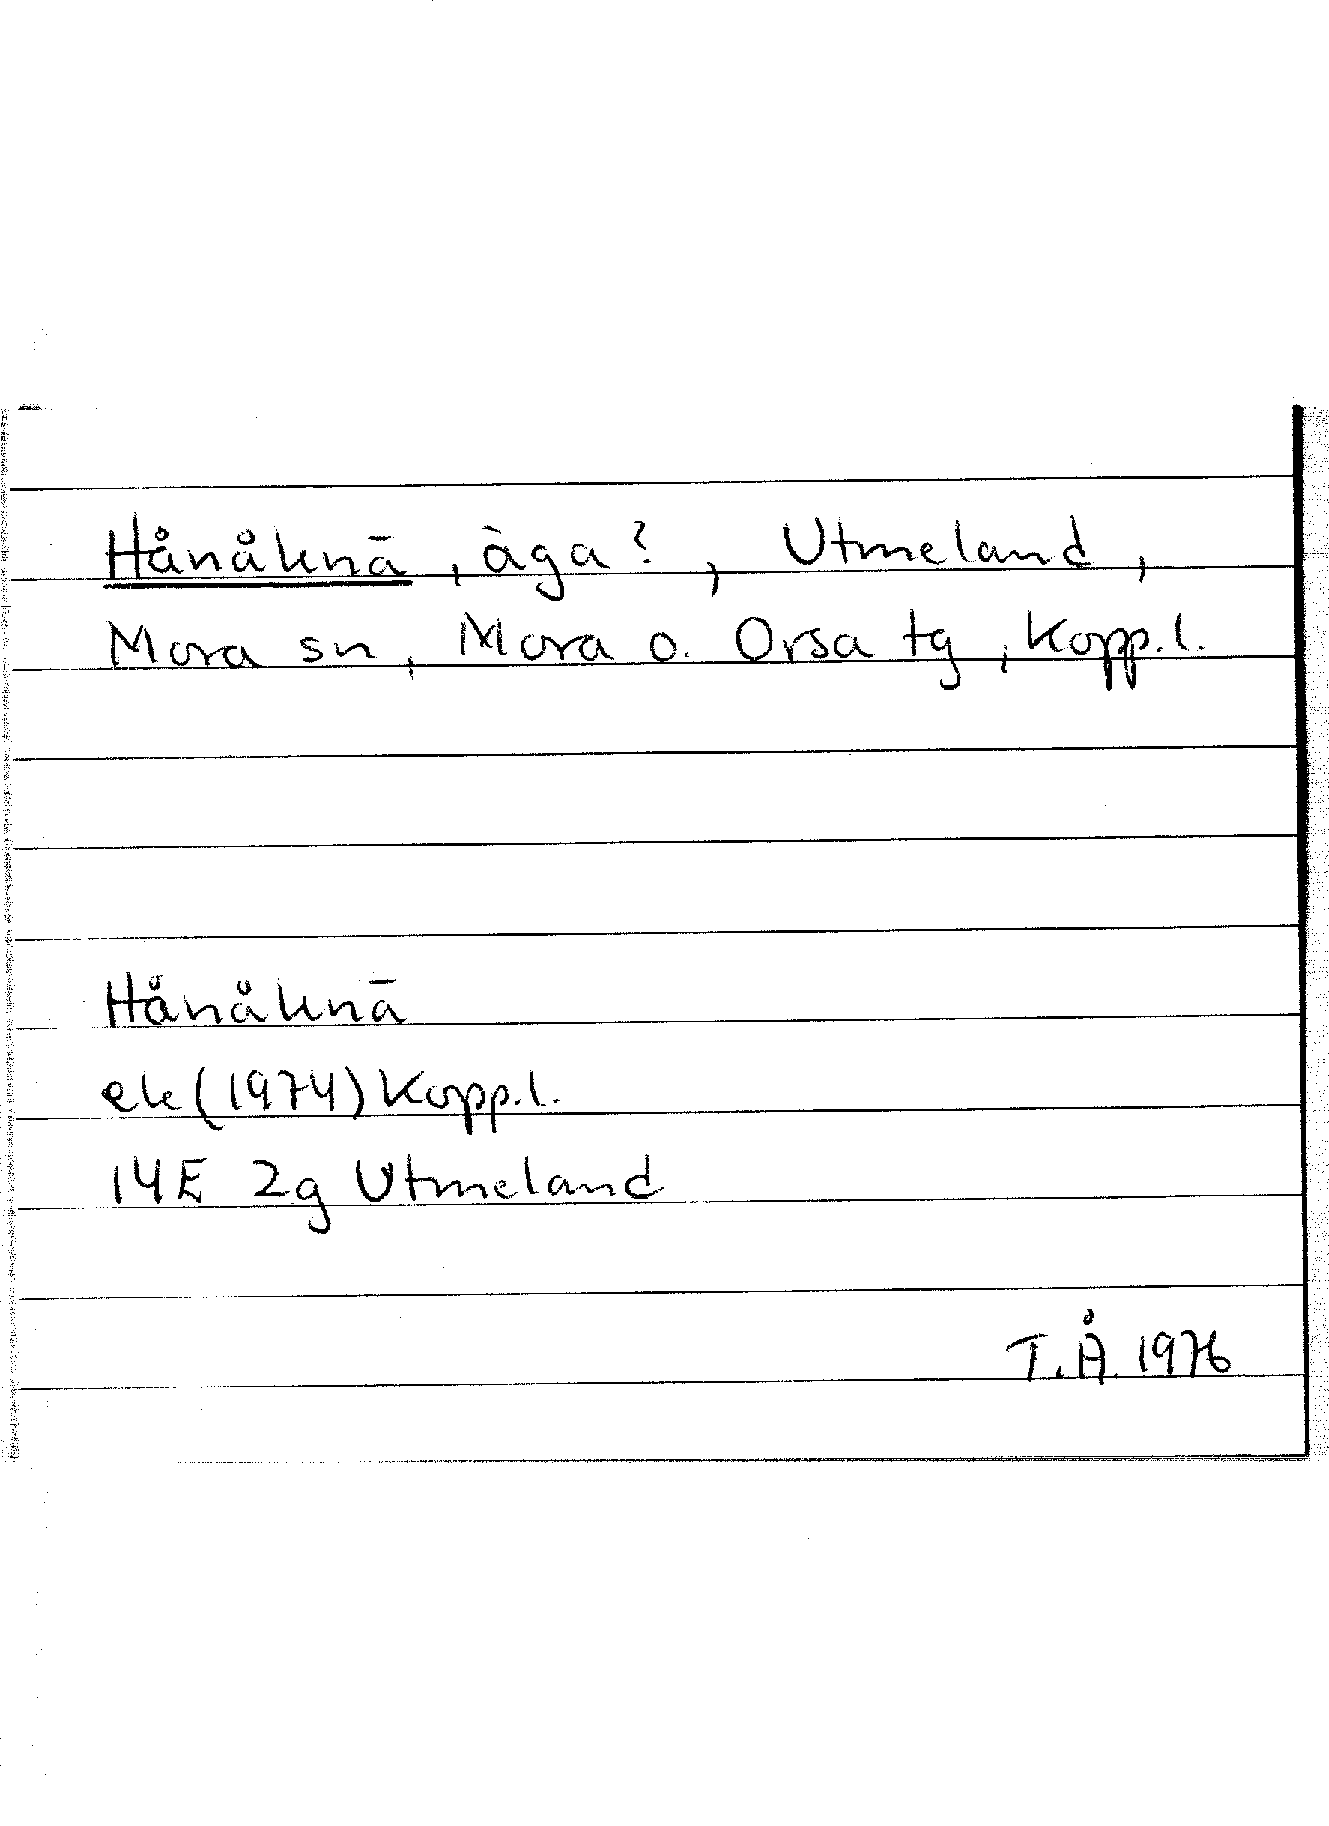 Hånåknä, äga?, Utmeland,
Mora sn, Mora o. Orsa tg, Kopp.l.
Hånåknä
ek (1974) Kopp.l.
14E 2g Utmeland
T.Å. 1976